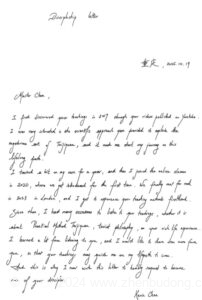 Discipleship letter
Master Chen,
I first discovered your teachings in 2017 through your videos published on Youtube.
I was very attracted to the scientific approach you provided to explain the
mysterious art of Taijiquan, and it made me start my journey in this
lifelong path.
I trained a bit on my own for a year, and then I joined the online classes
in 2020, where we got introduced for the first time. We finally met for real
in 2023 in London, and I got to experience your teaching methods firsthand.
Since then, I had many occasions to listen to your teachings, whether it is
about Practical Method Taijiquan, Taoist philosophy, or your rich life experience.
I learned a lot from listening to you, and I would like to learn even more from
you, so that your teachings may guide me on my lifepath to come.
And this is why I now write this letter to kindly request to become
one of your disciples.
Chen